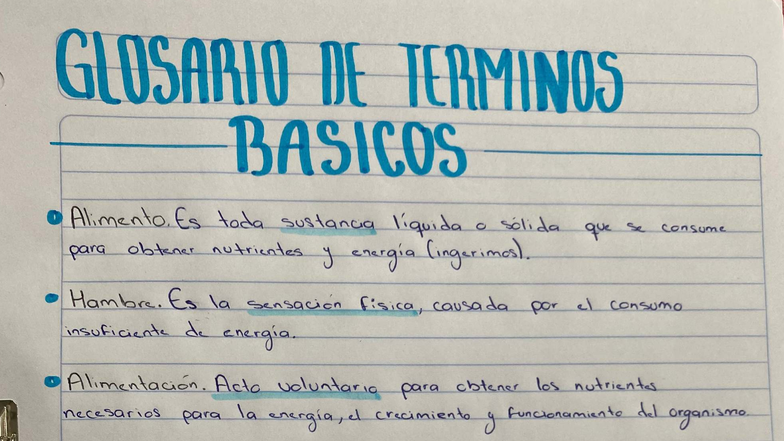 GLOSARIO DE TERMINOS
BASICOS
Alimento. Es toda sustancia líquida o sólida que se consume
para obtener nutrientes y energía (ingerimos).
Hambre. Es la sensación física, causada por el consumo
insuficiente de energía.
Alimentación. Acto voluntario para obtener los nutrientes
necesarios para la energía, el crecimiento y funcionamiento del organismo